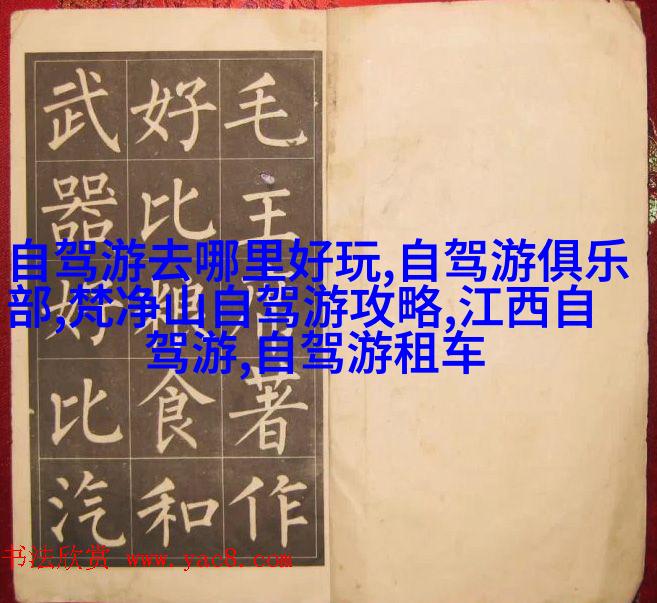 毛主席著作
好比糧食和
武器好比汽
自驾游去哪里好玩,自驾游俱乐
部,梵净山自驾游攻略,江西自
驾游,自驾游租车
书法欣赏 www.yac8.com